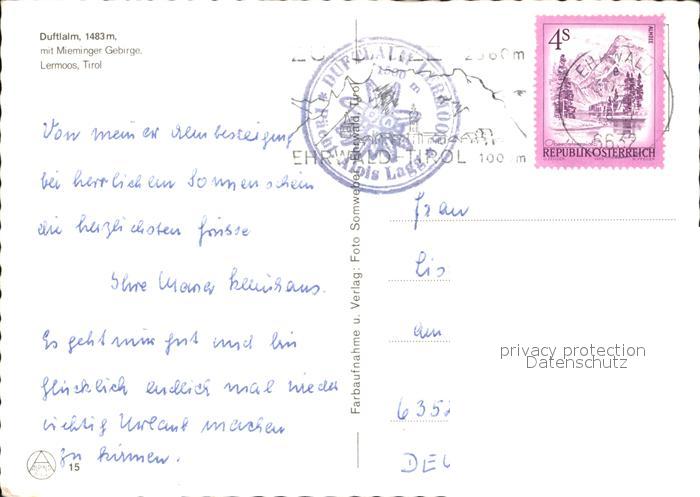 Duftlalm, 1483 m,
mit Mieminger Gebirge.
Lermoos, Tirol
Von meiner Almbesteigung
bei herrlichem Sonnenschein
die herzlichsten Grüsse
Ihre Maria
Es geht mir gut und bin
glücklich endlich mal wieder
richtig Urlaub machen
zu können.
15
Farbaufnahme u. Verlag: Foto Somweber, Ehrwald, Tirol
DUFTLALM LERMOOS
1500 m
Alois Lagg
EHRWALD TIROL 1000 m
4S
ALMSEE
REPUBLIK ÖSTERREICH
EHRWALD
6632
Frau
Lis
am
6352
DEU
privacy protection
Datenschutz